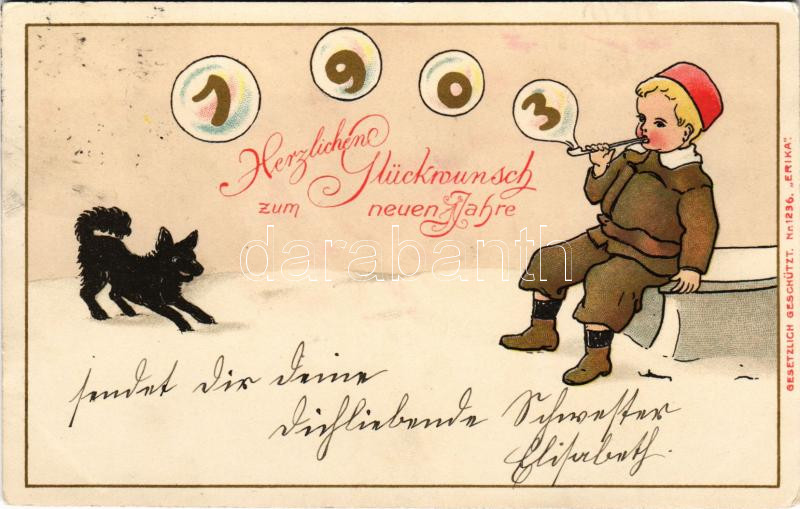 1903
Herzlichen
Glückwunsch
zum neuen Jahre
darabanth
sendet dir deine
dichliebende Schwester
Elisabeth.
GESETZLICH GESCHÜTZT. Nr. 1236. „ERIKA".